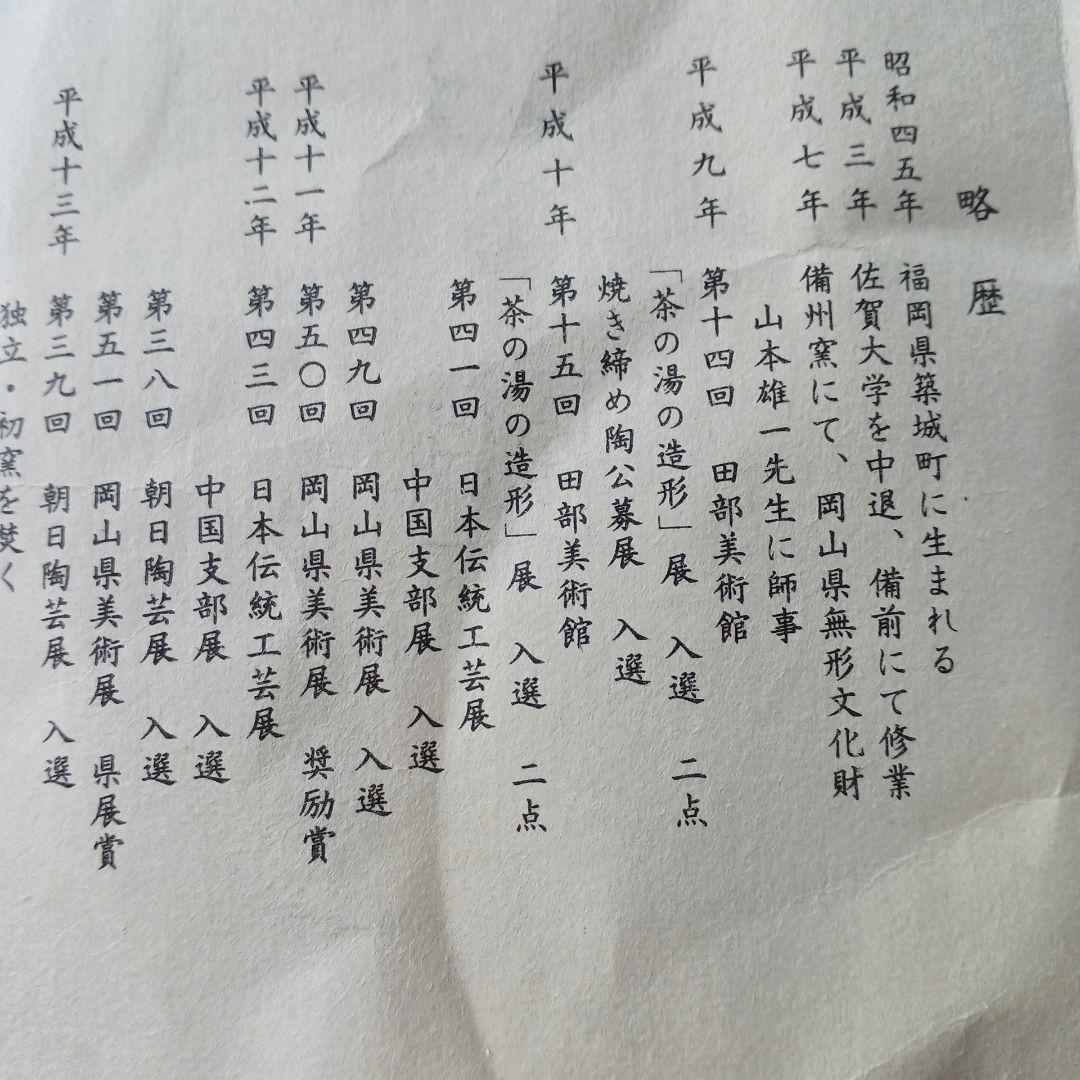 略歴
昭和四五年 福岡県築城町に生まれる
平成三年 佐賀大学を中退、備前にて修業
平成七年 備州窯にて、岡山県無形文化財
山本雄一先生に師事
平成九年 第十四回 田部美術館
「茶の湯の造形」展 入選 二点
焼き締め陶公募展 入選
平成十年 第十五回 田部美術館
「茶の湯の造形」展 入選 二点
第四一回 日本伝統工芸展
中国支部展 入選
第四九回 岡山県美術展 入選
平成十一年 第五〇回 岡山県美術展 奨励賞
平成十二年 第四三回 日本伝統工芸展
中国支部展 入選
第三八回 朝日陶芸展 入選
第五一回 岡山県美術展 県展賞
平成十三年 第三九回 朝日陶芸展 入選
独立・初窯を焚く